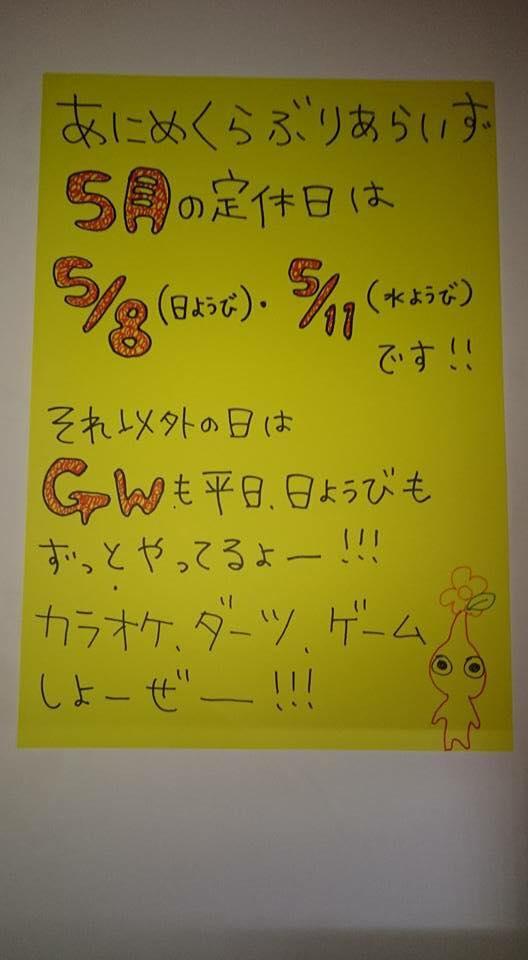 あにめくらぶりあらいず
5月の定休日は
5/8(日ようび)・5/11(水ようび)
です!!
それ以外の日は
GWも平日、日ようびも
ずっとやってるよー!!!
カラオケ、ダーツ、ゲーム
しよーぜー!!!